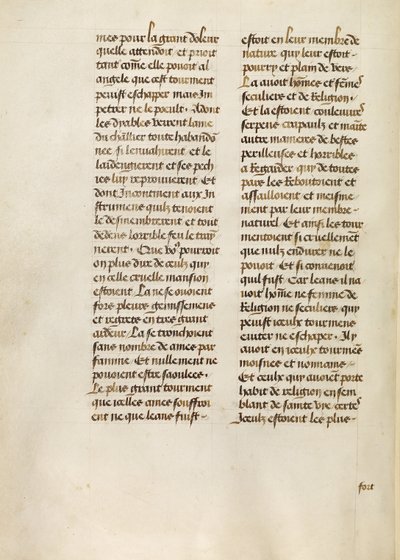 mes pour la grant doleur
quelle attendoit et prioit
tant co͞me elle pouoit al
angele que cest tourment
peust eschapper mais Im
petrer ne le pocult. Adont
les dyables veirent lame
du ch͞lier toute habando͞n
nee si lenuahirent et le
laidengierent et ses pech
ies luy reprouuerent Et
dont Incontinent aux In
strumens quilz tenoient
le desmembrerent et tout
dedens lorrible feu le tray
nerent. Que vo⁹ pourroit
on plus dire de ceulz quy
en celle cruelle mansion
estoient La ne se ouoient
fors pleurs gemissemens
et regretz en tres grant
ardeur La se tronchoient
sans nombre de ames par
famine. Et nullement ne
pouoient estre saoulees.
Le plus grant tourment
que icelles ames souffroi
ent ne que leans fuist.
estoit en leur membre de
nature quy leur estoit
pourry et plain de vers
La auoit ho͞mes et fe͞mes
seculiers et de Religion.
Et la estoient couleuures
serpens crapaulz et mai͞te
autre manieres de bestes
perilleuses et horribles
a Regarder quy de toutes
pars les Reboutoient et
assailloient et meisme
ment par leur membre
naturel Et ainsi les tour
mentoient si cruellement
que nulz endurer ne le
pouoit Et si conuenoit
quil fust Car leans il na
uoit ho͞me ne femme de
Religion ne seculiers quy
peust iceulx tourmens
euiter ne eschaper. Il y
auoit en iceulx tourmens
moisnes et nonnains
Et ceulx quy auoie͞t porte
habit de religion en sem
blant de sainte vie certes
Iceulz estoient les plus
fort